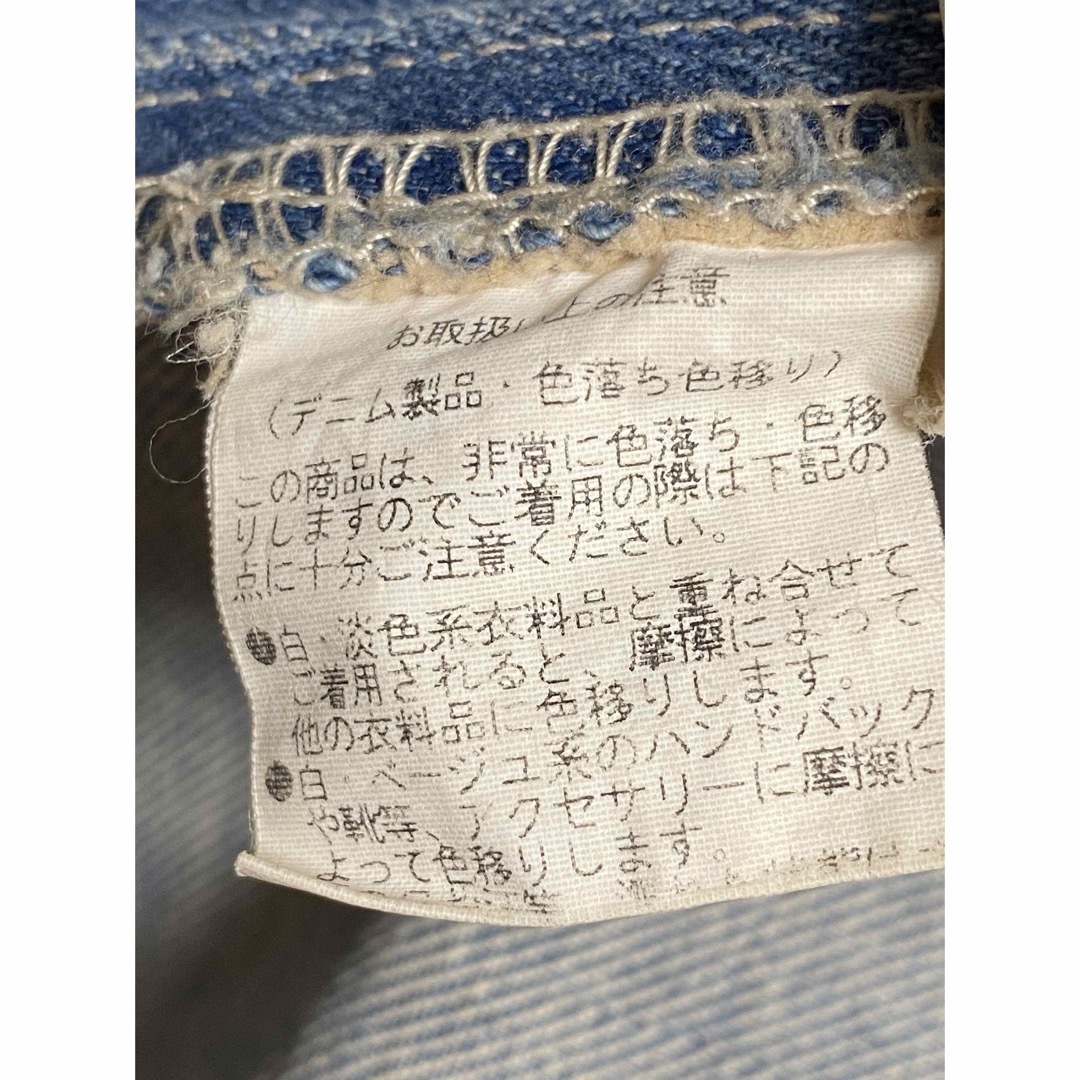 お取扱い上の注意
(デニム製品・色落ち色移り)
この商品は、非常に色落ち・色移
りしますのでご着用の際は下記の
点に十分ご注意ください。
●白・淡色系衣料品と重ね合せて
ご着用されると、摩擦によって
他の衣料品に色移りします。
●白・ベージュ系のハンドバック
や靴等、アクセサリーに摩擦に
よって色移りします。